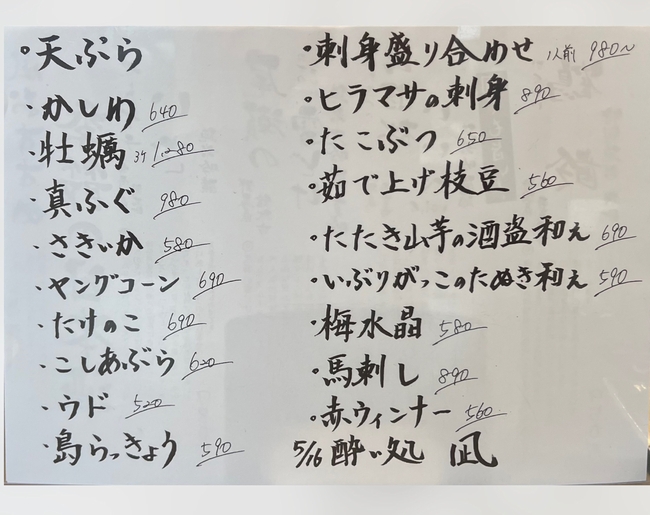 天ぷら
・かしわ 640
・牡蠣 3ケ 1,280
・真ふぐ 980
・さきいか 580
・ヤングコーン 690
・たけのこ 690
・こしあぶら 620
・ウド 520
・島らっきょう 590
・刺身盛り合わせ 1人前 980〜
・ヒラマサの刺身 890
・たこぶつ 650
・茹で上げ枝豆 560
・たたき山芋の酒盗和え 690
・いぶりがっこのたぬき和え 590
・梅水晶 580
・馬刺し 890
・赤ウィンナー 560
5/16 酔い処 凪